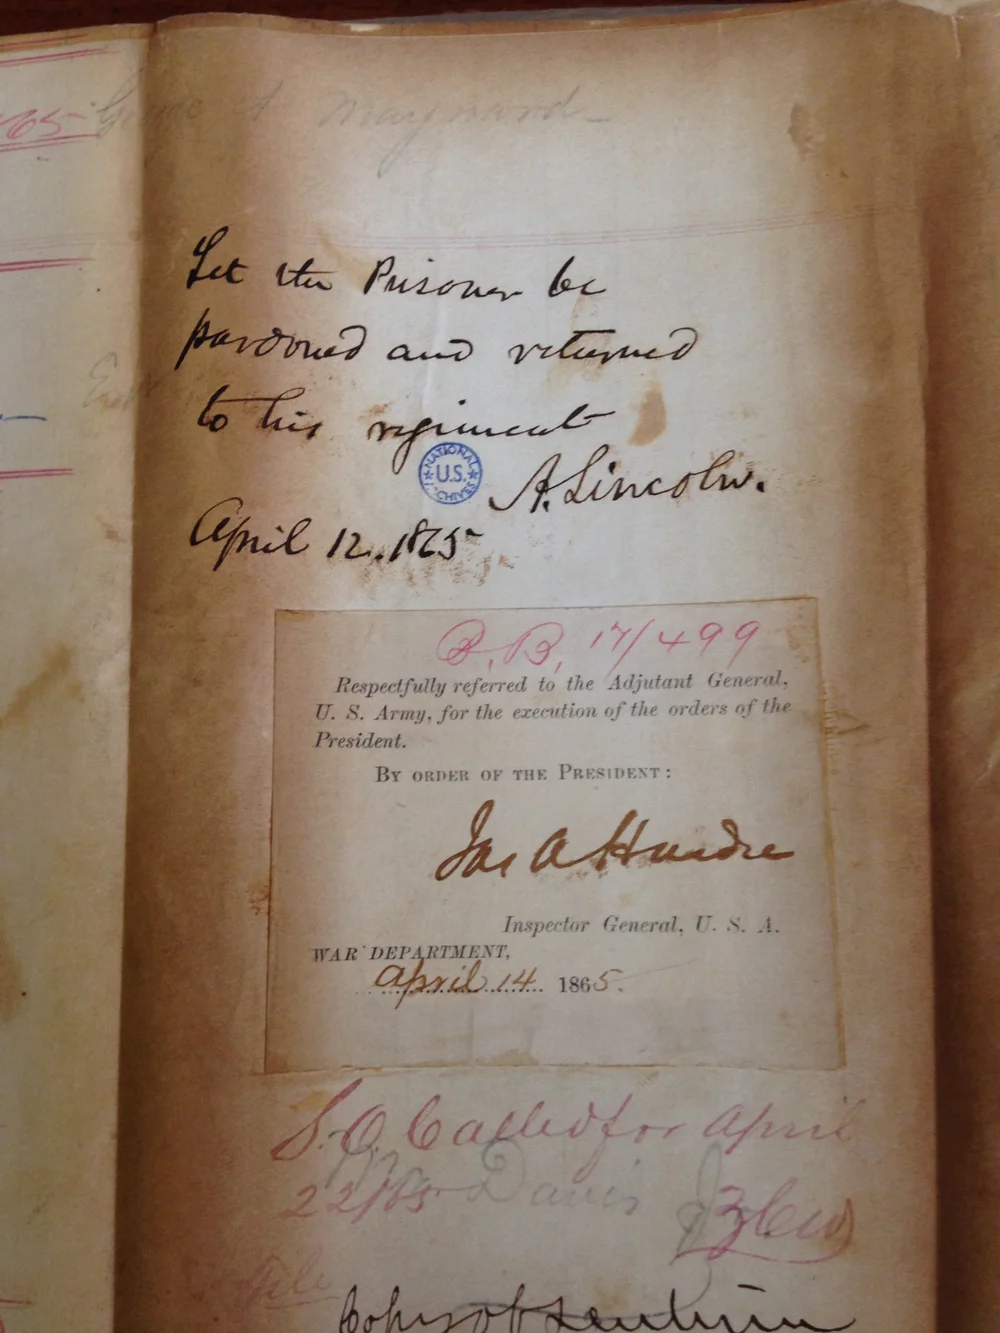 65
George A Maynard
Let the Prisoner be
pardoned and returned
to his regiment
A. Lincoln.
NATIONAL ARCHIVES U.S.
April 12. 1865
B. B, 17/499
Respectfully referred to the Adjutant General,
U. S. Army, for the execution of the orders of the
President.
BY ORDER OF THE PRESIDENT:
Jas A Hardie
Inspector General, U. S. A.
WAR DEPARTMENT,
April 14 1865.
S.O. Called for April
22/65
Davis
File
Copy of